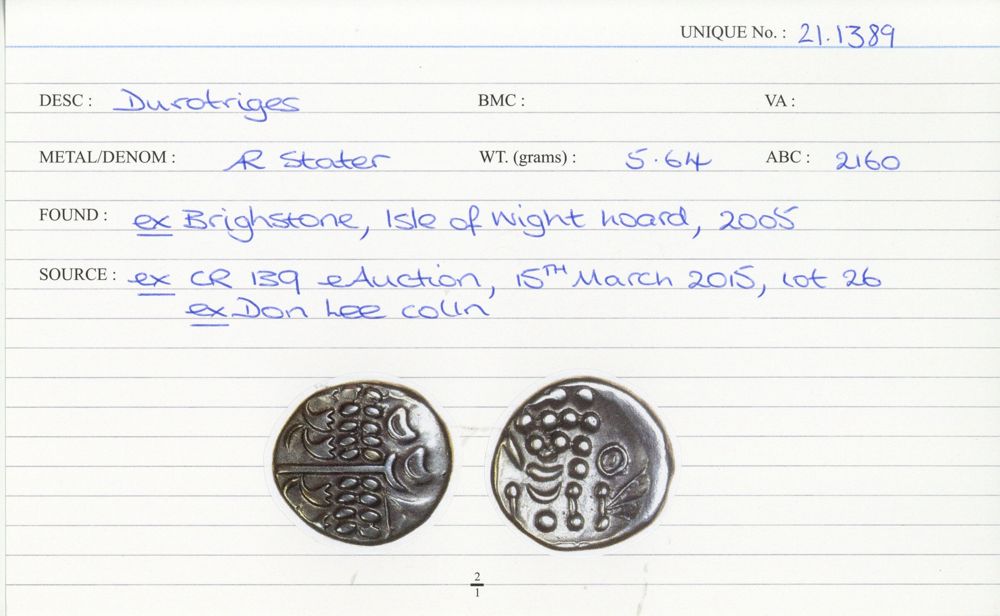 UNIQUE No. : 21.1389
DESC : Durotriges BMC : VA :
METAL/DENOM : AR Stater WT. (grams) : 5.64 ABC : 2160
FOUND : ex Brighstone, Isle of Wight hoard, 2005
SOURCE : ex CR 139 eAuction, 15TH March 2015, lot 26
ex Don Lee colln
2
1